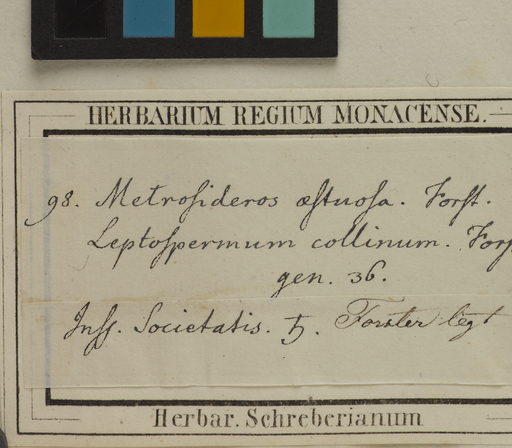 HERBARIUM REGIUM MONACENSE.
98. Metroſideros æſtuoſa. Forſt.
Leptoſpermum collinum. Forſ
gen. 36.
Inſſ. Societatis. ♄. Forster legt
Herbar. Schreberianum